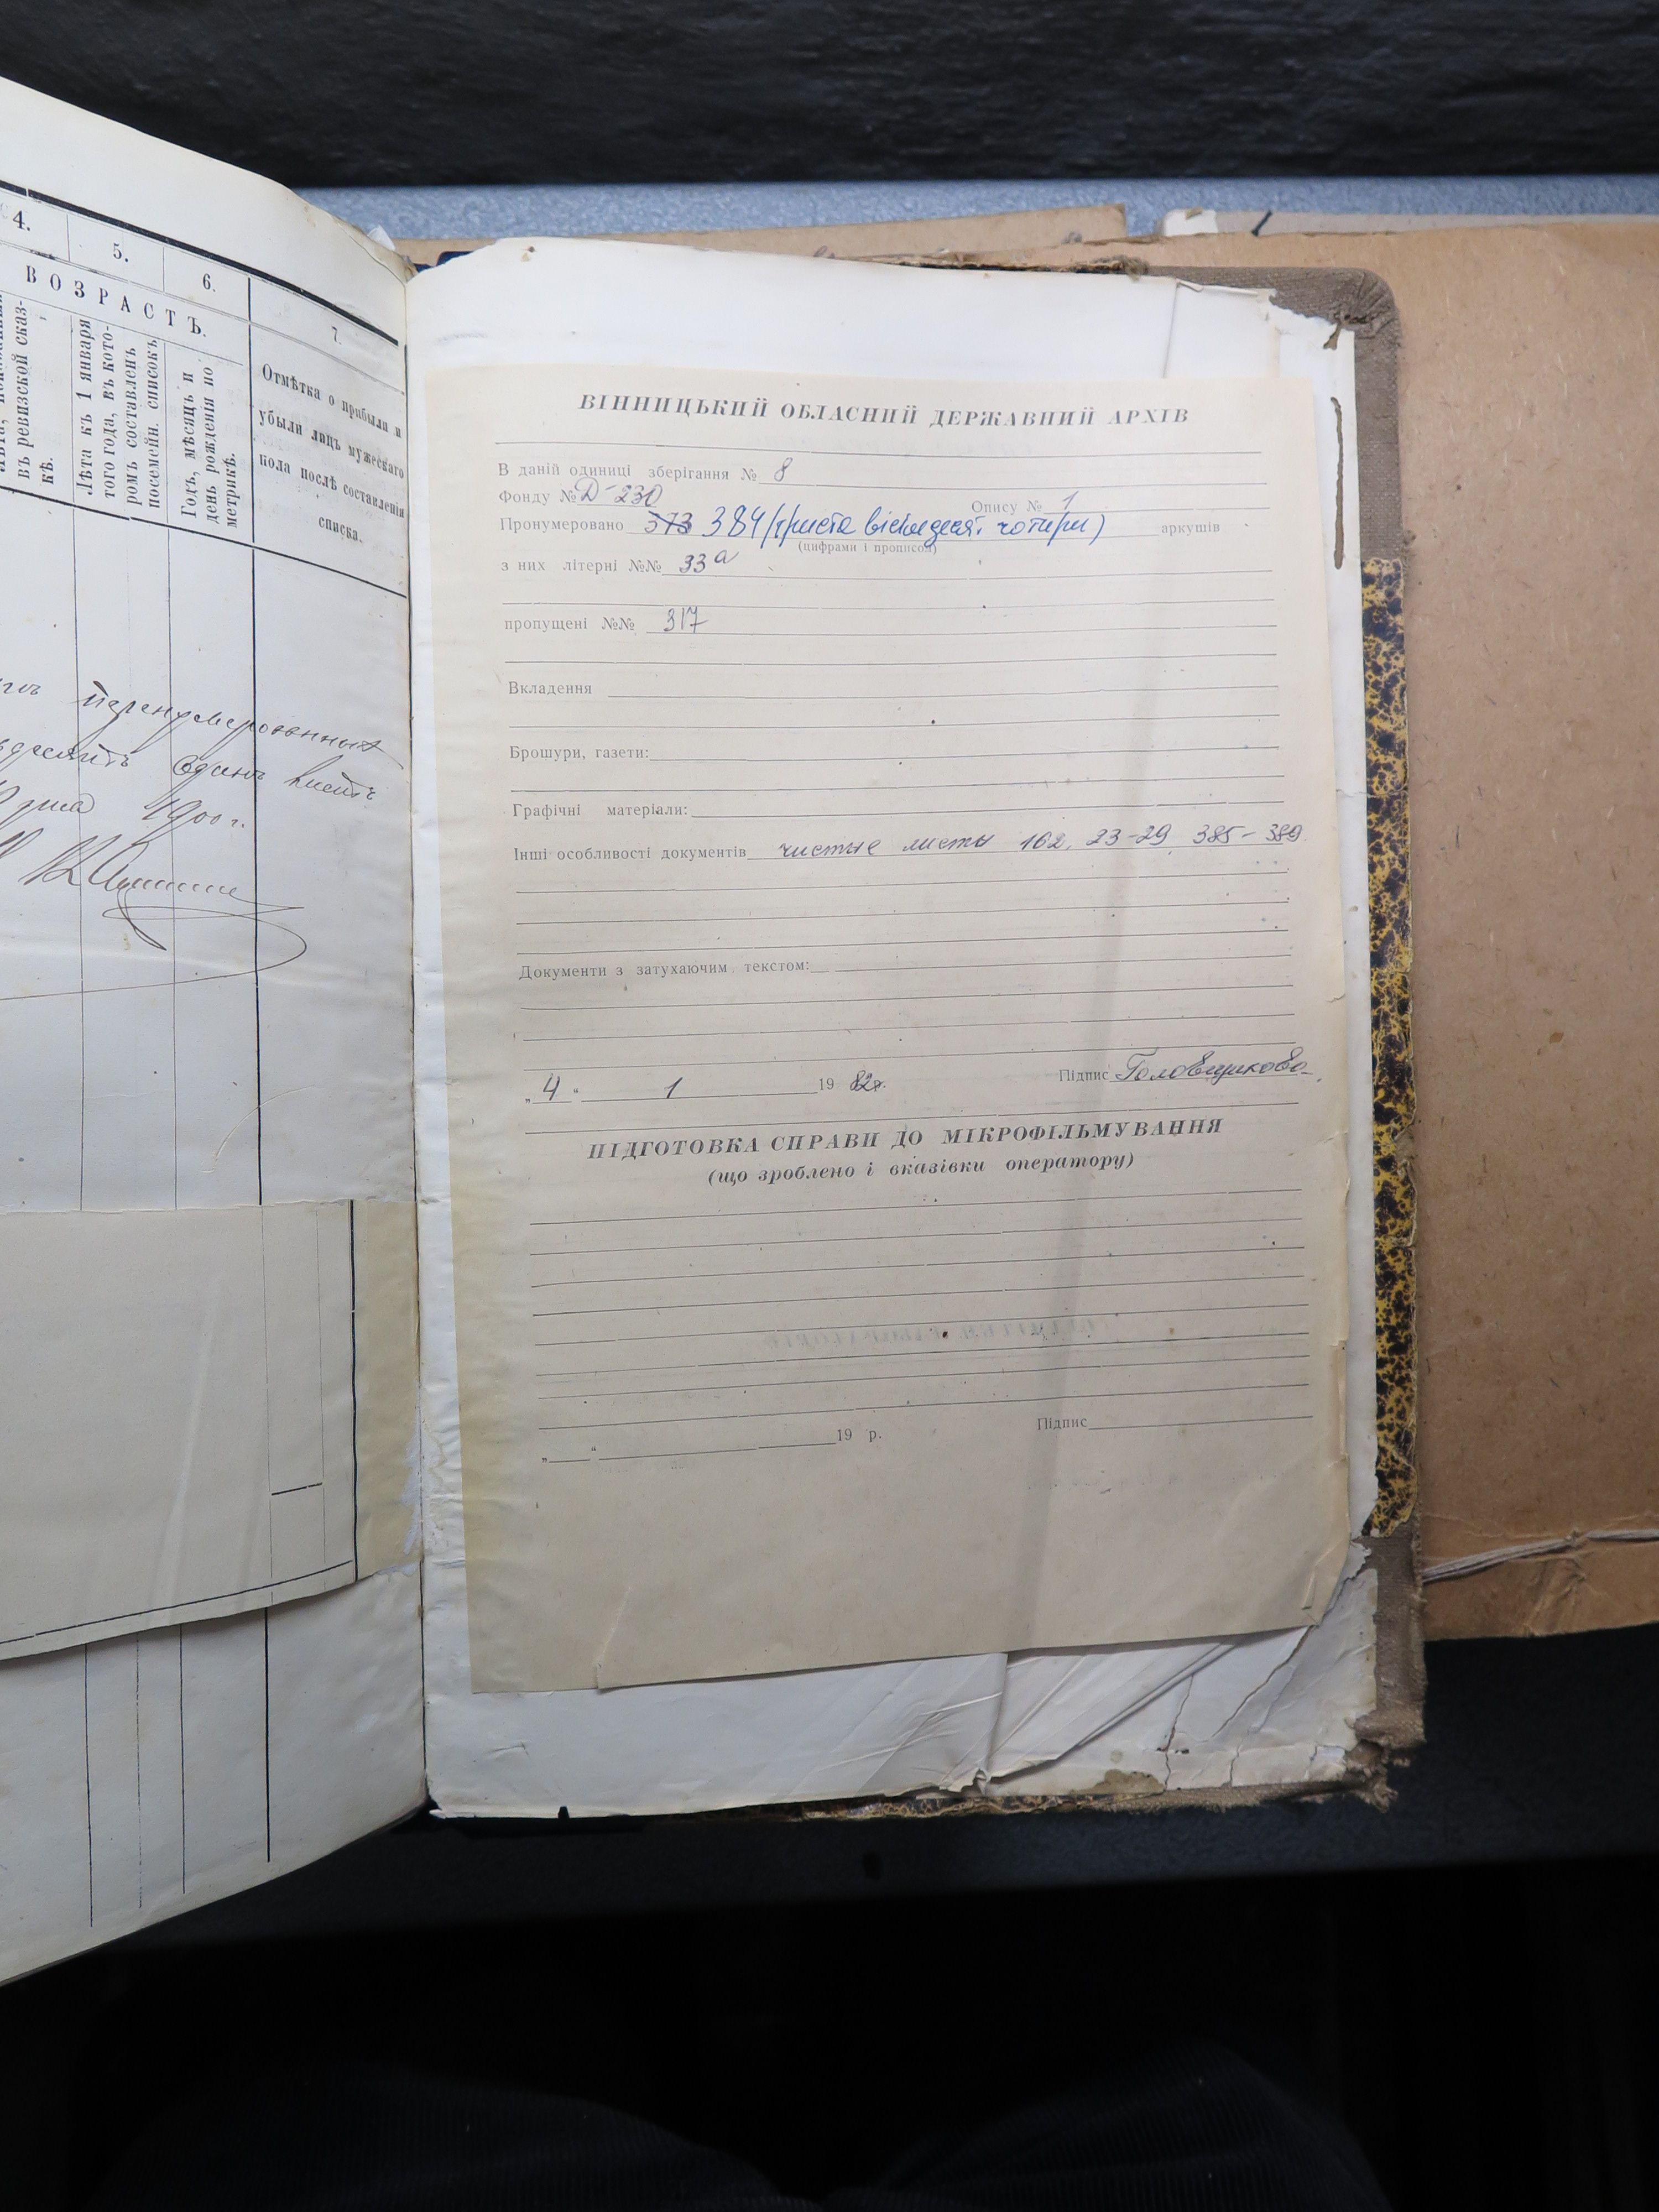 4.
5.
6.
7.
ВОЗРАСТЪ.
въ ревизской сказ-
кѣ.
Лѣта къ 1 января
того года, въ кото-
ромъ составленъ
посемейн. список.
Годъ, мѣсяцъ и
день рожденія по
метрикѣ.
Отмѣтка о прибыли и
убыли лицъ мужескаго
пола послѣ составленія
списка.
перенумерованныхъ
одинъ листъ
1900 г.
ВІННИЦЬКИЙ ОБЛАСНИЙ ДЕРЖАВНИЙ АРХІВ
В даній одиниці зберігання № 8
Фонду № Д-230 Опису № 1
Пронумеровано 373 384 (триста вісімдесят чотири) аркушів
(цифрами і прописом)
з них літерні №№ 33а
пропущені №№ 317
Вкладення
Брошури, газети:
Графічні матеріали:
Інші особливості документів чистые листы 162, 23-29, 385-389
Документи з затухаючим текстом:
„4“ 1 19 82р. Підпис Головщикова
ПІДГОТОВКА СПРАВИ ДО МІКРОФІЛЬМУВАННЯ
(що зроблено і вказівки оператору)
„ “ 19 р. Підпис